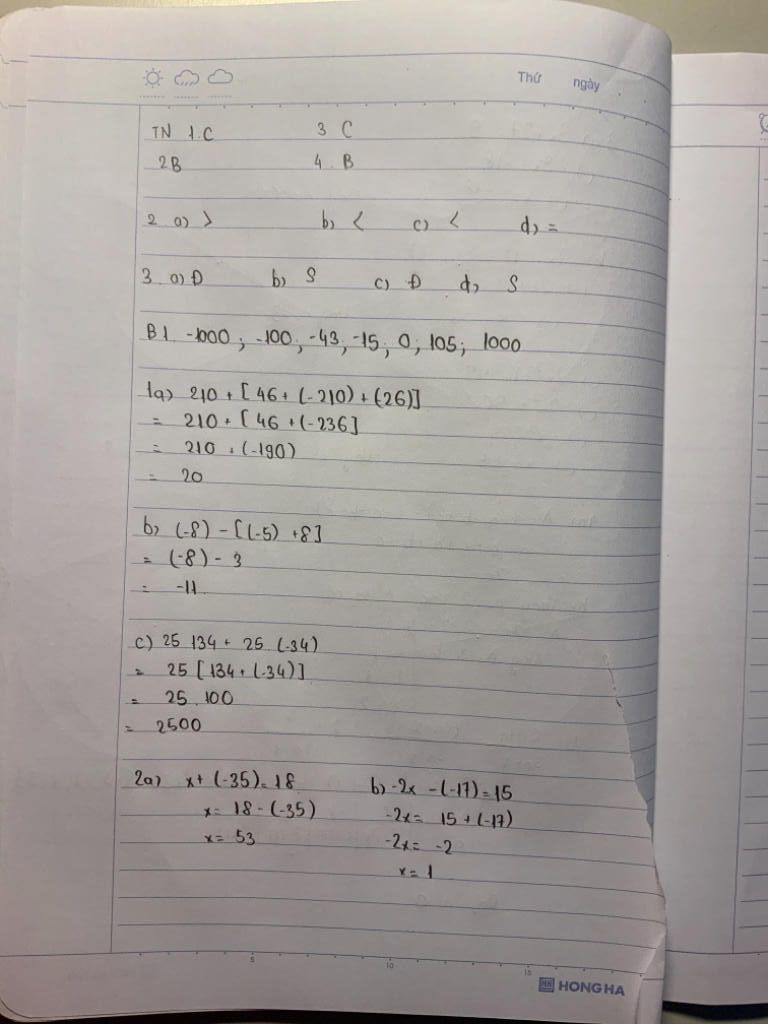 Thứ ngày
TN 1.C 3 C
2B 4. B
2 a) > b) < c) < d) =
3. a) Đ b) S c) Đ d) S
B1 -1000 ; -100 ; -43 ; -15 ; 0 ; 105 ; 1000
1a) 210 + [46 + (-210) + (26)]
= 210 + [46 + (-236]
= 210 + (-190)
= 20
b) (-8) - [(-5) + 8]
= (-8) - 3
= -11
c) 25 134 + 25 (-34)
= 25 [134 + (-34)]
= 25 . 100
= 2500
2a) x + (-35) = 18 b) -2x - (-17) = 15
x = 18 - (-35) -2x = 15 + (-17)
x = 53 -2x = -2
x = 1
5 10 15
HH HONG HA